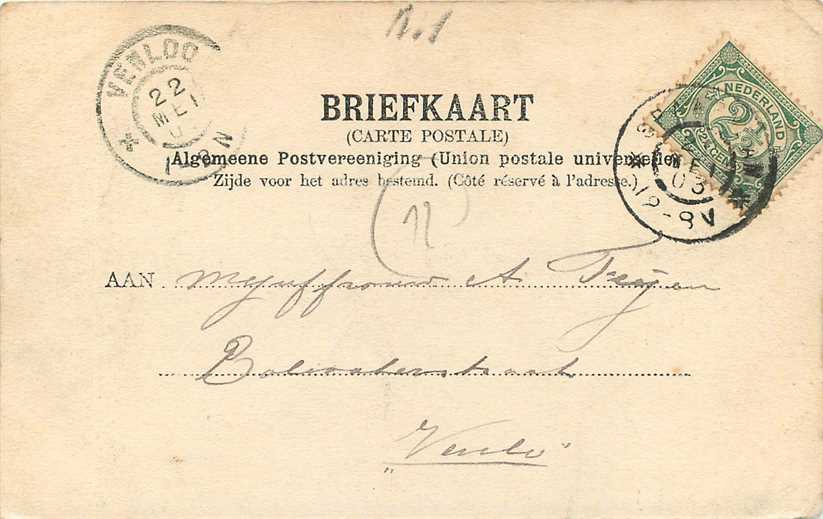 VENLOO
22
MEI
NEDERLAND
2½
MEI
03
BRIEFKAART
(CARTE POSTALE)
Algemeene Postvereeniging (Union postale universelle)
Zijde voor het adres bestemd. (Côté réservé à l'adresse.)
12
AAN Mejuffrouw A
Bolwaterstraat
„Venlo"